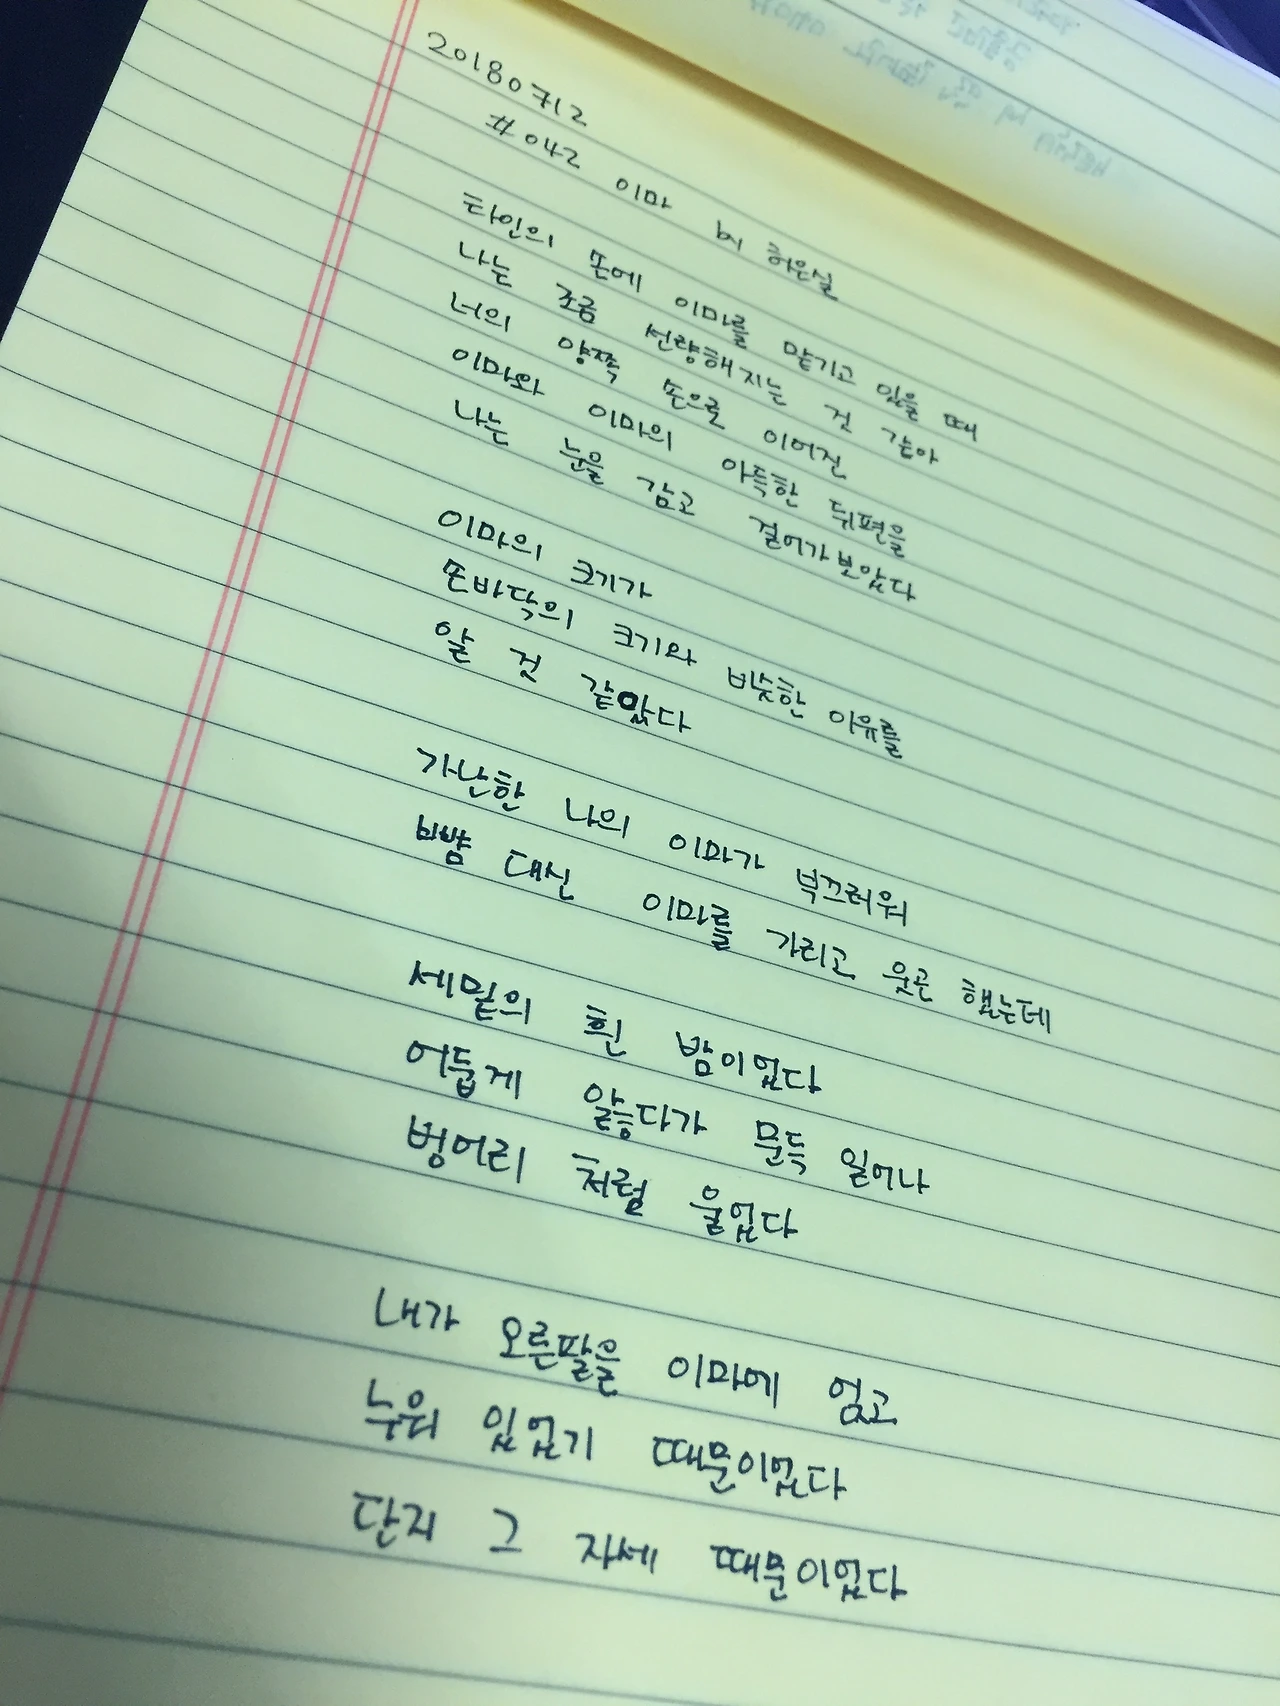 20180712
#042 이마 by 허은실
타인의 손에 이마를 맡기고 있을 때
나는 조금 선량해지는 것 같아
너의 양쪽 손으로 이어진
이마와 이마의 아득한 뒤편을
나는 눈을 감고 걸어가보았다
이마의 크기가
손바닥의 크기와 비슷한 이유를
알 것 같았다
가난한 나의 이마가 부끄러워
뺨 대신 이마를 가리고 웃곤 했는데
세밑의 흰 밤이었다
어둡게 앓다가 문득 일어나
벙어리처럼 울었다
내가 오른팔을 이마에 얹고
누워 있었기 때문이었다
단지 그 자세 때문이었다